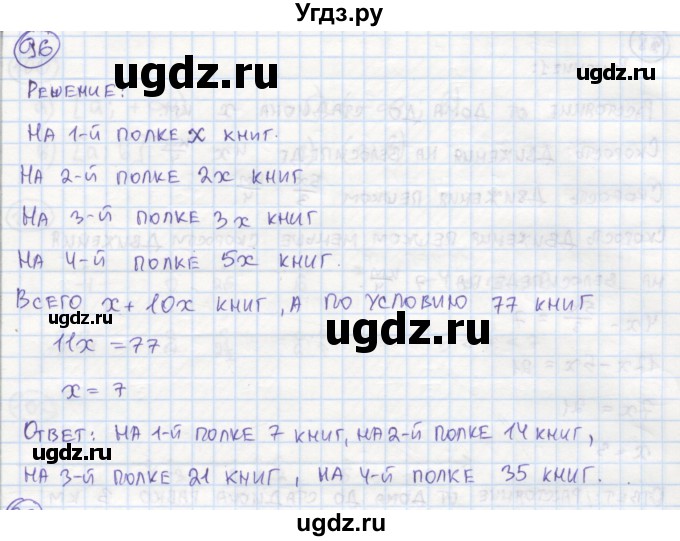 Угдз.ру
96
ugdz.ru
Решение:
На 1-й полке x книг.
На 2-й полке 2x книг
На 3-й полке 3x книг
На 4-й полке 5x книг.
Всего x + 10x книг, а по условию 77 книг
ugdz.ru ugdz.ru
11x = 77
x = 7
Ответ: на 1-й полке 7 книг, на 2-й полке 14 книг,
на 3-й полке 21 книг, на 4-й полке 35 книг.
ugdz.ru
ugdz.ru